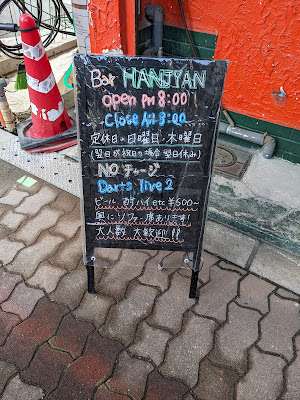 Bar HANJYAN
open PM 8:00
Close AM 8:00
定休日・日曜日・木曜日
(翌日が祝日の場合翌日休み)
NO チャージ
Darts live 2
ビール 酎ハイ etc ¥600~
奥にソファー席あります!
大人数 大歓迎!!